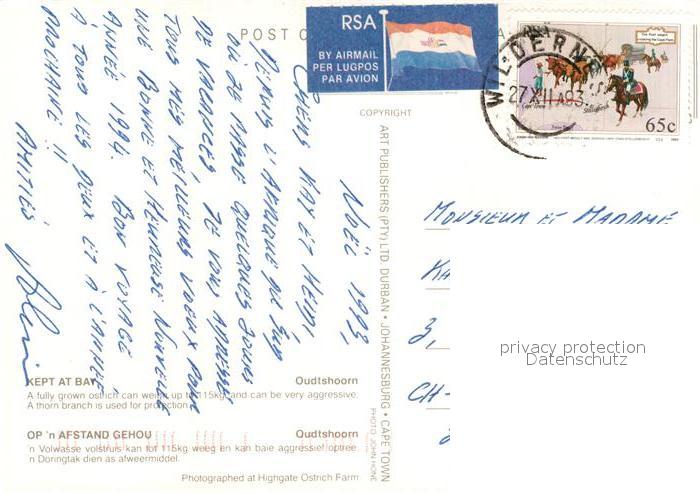 POST C
RSA
BY AIRMAIL
PER LUGPOS
PAR AVION
65c
27 XII 93
COPYRIGHT
ART PUBLISHERS (PTY) LTD DURBAN • JOHANNESBURG • CAPE TOWN
PHOTO JOHN HONE
NOËL 1993,
CHERS KAY ET HEIDI,
DEPUIS L'AFRIQUE DU SUD
OÙ JE PASSE QUELQUES JOURS
DE VACANCES, JE VOUS ADRESSE
TOUS MES MEILLEURS VOEUX POUR
UNE BONNE ET HEUREUSE NOUVELLE
ANNÉE 1994. BON VOYAGE
À TOUS LES DEUX ET À L'ANNÉE
PROCHAINE !!
AMITIÉS
MONSIEUR ET MADAME
KA
3,
CH-
privacy protection
Datenschutz
KEPT AT BAY Oudtshoorn
A fully grown ostrich can weigh up to 115kg and can be very aggressive.
A thorn branch is used for protection.
OP 'n AFSTAND GEHOU Oudtshoorn
'n Volwasse volstruis kan tot 115kg weeg en kan baie aggressief optree.
'n Doringtak dien as afweermiddel.
Photographed at Highgate Ostrich Farm